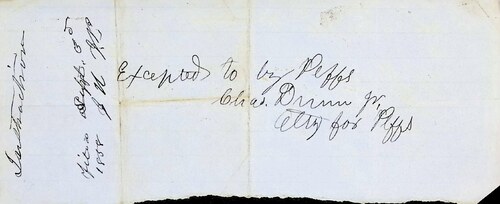 Instruction
filed Sept. 3d
1858 J N
Excepted to by Peffs
Chas. Drum Jr,
Atty for Peffs